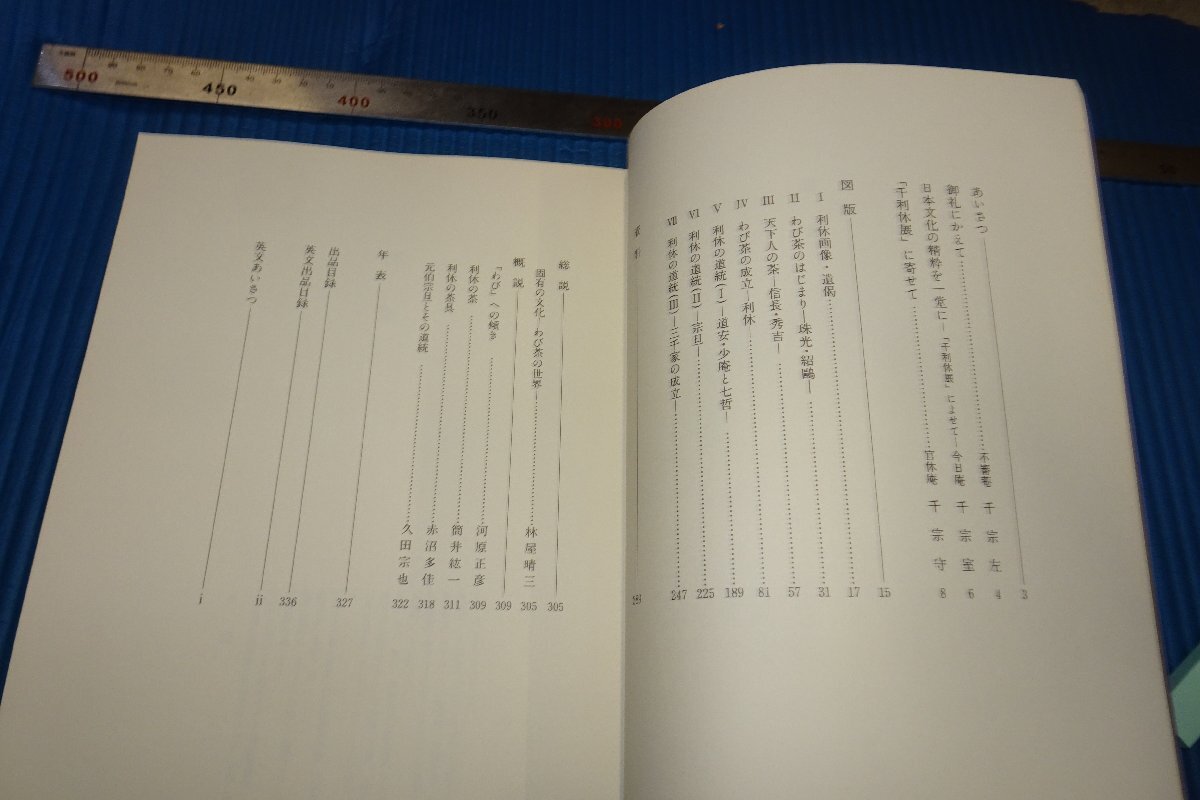 あいさつ 3
御礼にかえて 不審菴 千宗左 4
日本文化の精粋を一堂に―「千利休展」によせて― 今日庵 千宗室 6
「千利休展」に寄せて 官休庵 千宗守 8
図版 15
I 利休画像・遺偈 17
II わび茶のはじまり―珠光・紹鷗― 31
III 天下人の茶―信長・秀吉― 57
IV わび茶の成立―利休 81
V 利休の道統(I)―道安・少庵と七哲― 189
VI 利休の道統(II)―宗旦― 225
VII 利休の道統(III)―三千家の成立― 247
総説 305
固有の文化 わび茶の世界 林屋晴三 305
概説 309
「わび」への傾き 河原正彦 309
利休の茶 筒井紘一 311
利休の茶具 赤沼多佳 318
元伯宗旦とその道統 久田宗也 322
年表 327
出品目録 336
英文出品目録 ii
英文あいさつ i
500 450 400 350 300